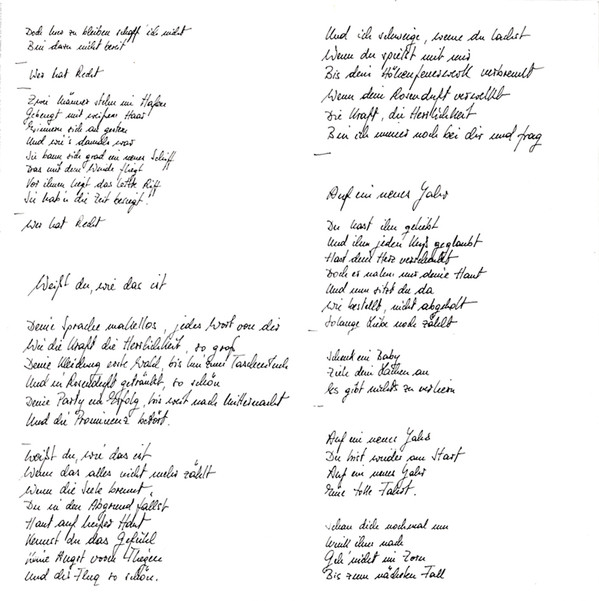 Doch hier zu bleiben schaff' ich nicht
Bin dazu nicht bereit
Wer hat Recht
Zwei Männer stehn im Hafen
Gebeugt mit weißem Haar
Erinnern sich an gestern
Und wie's damals war
Sie baun sich grad ein neues Schiff
Das mit dem Winde fliegt
Vor ihnen liegt das letzte Riff
Sie hab'n die Zeit besiegt!
Wer hat Recht
Weißt du, wie das ist
Deine Sprache makellos, jedes Wort von dir
Wie die Kraft die Herrlichkeit, so groß
Deine Kleidung erste Wahl, bis hin zum Taschentuch
Und in Rosenduft getränkt, so schön
Deine Party ein Erfolg, bis weit nach Mitternacht
Und die Prominenz betört.
Weißt du, wie das ist
Wenn das alles nicht mehr zählt
Wenn die Seele brennt,
Du in den Abgrund fällst
Haut auf heißer Haut
Kennst du das Gefühl
Keine Angst vorm Fliegen
Und der Flug so schön.
Und ich schweige, wenn du lachst
Wenn du spielst mit mir
Bis dein Höhenfeuerwerk verbrennt
Wenn dein Rosenduft verwelkt
Die Kraft, die Herrlichkeit
Bin ich immer noch bei dir und frag
Auf ein neues Jahr
Du hast ihn geliebt
Und ihm jeden Kuß geglaubt
Hast dein Herz verschenkt
Doch er nahm nur deine Haut
Und nun sitzt du da
Wie bestellt, nicht abgeholt
Solange Liebe noch zählt
Schenk ein Baby
Zieh dein Lachen an
Es gibt nichts zu verliern
Auf ein neues Jahr
Du bist wieder am Start
Auf ein neues Jahr
Eine tolle Fahrt.
Schau dich nochmal um
Wink ihm nach
Geh nicht im Zorn
Bis zum nächsten Fall